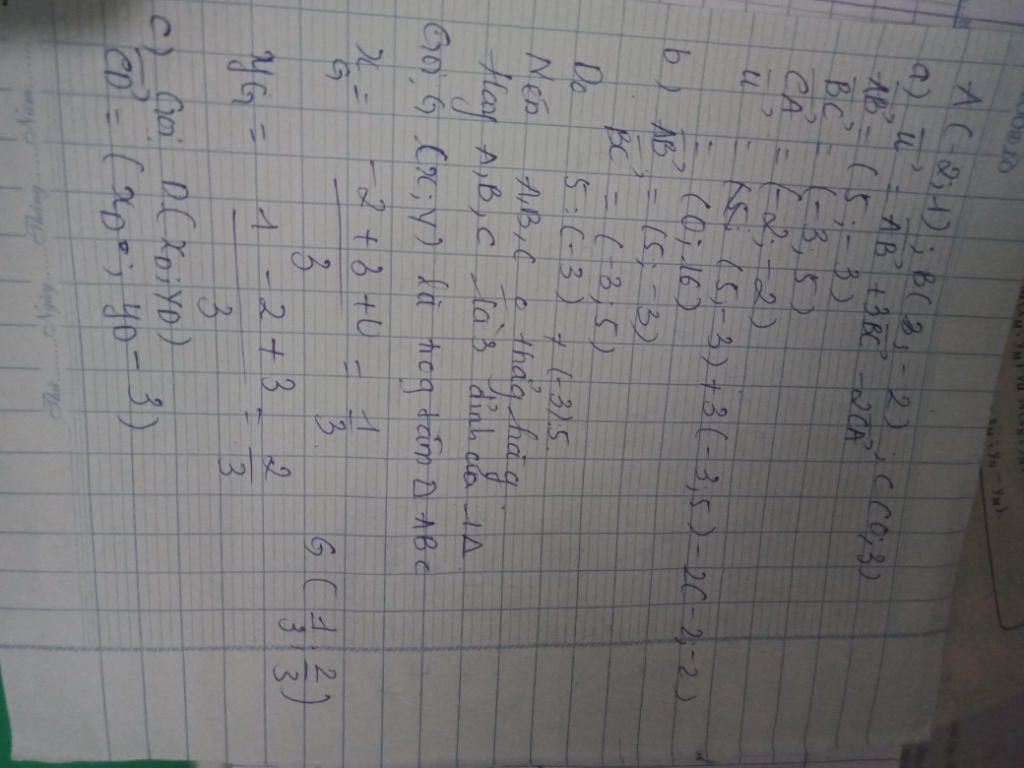 A(-2,1); B(3,-2); C(0,3)
a) u⃗ = AB⃗ + 3BC⃗ - 2CA⃗
AB⃗ = (5; -3)
BC⃗ = (-3, 5)
CA⃗ = (-2; -2)
u⃗ = (5, -3) + 3(-3, 5) - 2(-2, -2)
= (0; 16)
b) AB⃗ = (5; -3)
BC⃗ = (-3; 5)
Do 5:(-3) ≠ (-3):5
Nên A, B, C o thẳg hàg
Hay A, B, C là 3 đỉnh của 1 Δ
Gọi G (x; y) là trog tâm Δ ABC
x_G = (-2 + 3 + 0)/3 = 1/3
y_G = (1 - 2 + 3)/3 = 2/3 G(1/3; 2/3)
c) Gọi D(x_D; y_D)
CD⃗ = (x_D; y_D - 3)
Thứ Ngày Tháng Năm